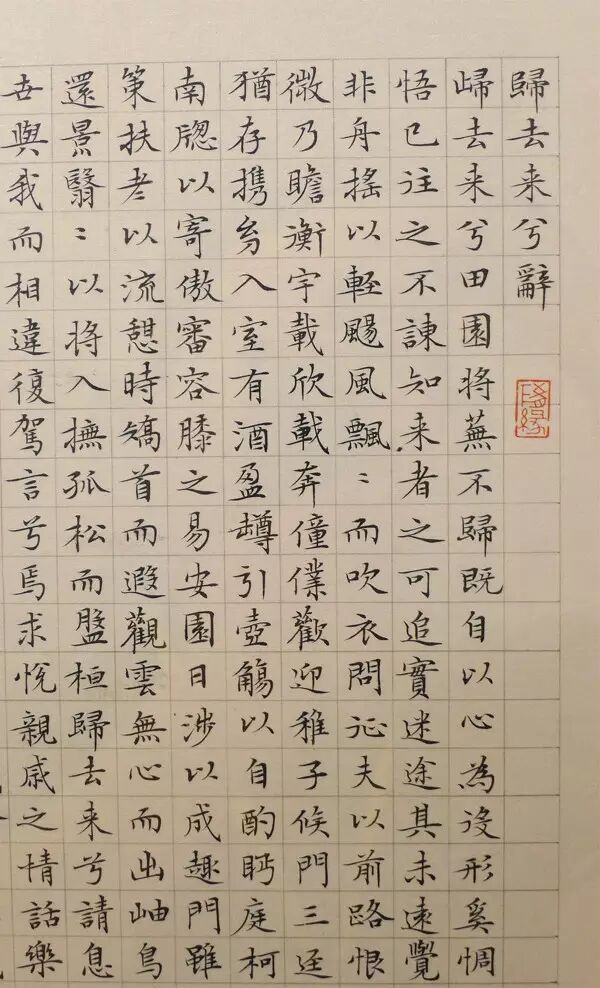 歸去来兮辭
歸去来兮田園将蕪不歸既自以心為役形奚惆
悟已往之不諫知来者之可追實迷途其未遠覺
非舟搖以輕颺風飄〻而吹衣問征夫以前路恨
微乃瞻衡宇載欣載奔僮僕歡迎稚子候門三逕
猶存携幼入室有酒盈罇引壺觴以自酌眄庭柯
南牕以寄傲審容膝之易安園日涉以成趣門雖
策扶老以流憩時矯首而遐觀雲無心而出岫鳥
還景翳〻以将入撫孤松而盤桓歸去来兮請息
世與我而相違復駕言兮焉求悦親戚之情話樂